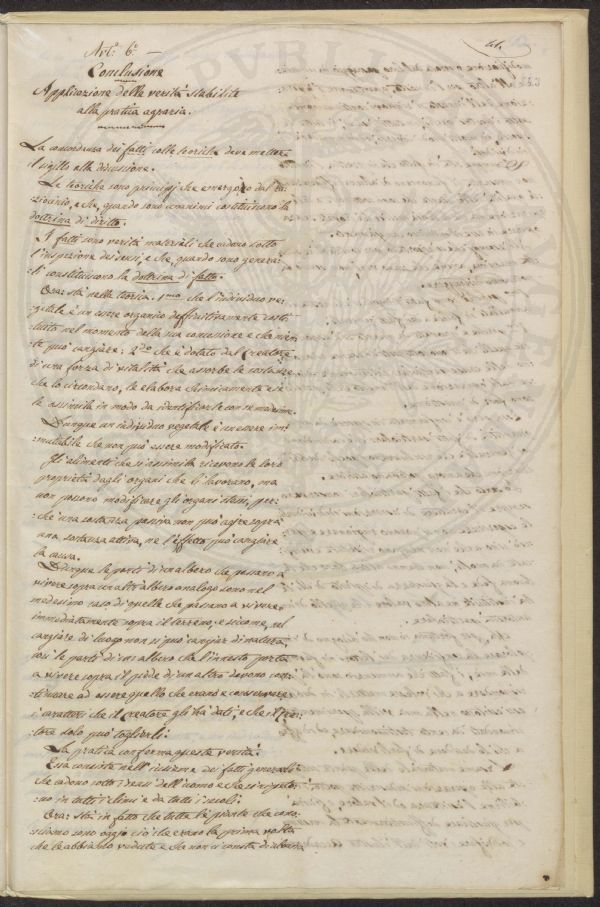 41.
Art.º 6.º —
Conclusione
Applicazione della verità stabilite
alla pratica agraria.
La concordanza dei fatti colle teoriche deve mettere
il sigillo alla discussione.
Le teoriche sono principj che emergono dal ra:
ziocinio, e che, quando sono unanimi costituiscono la
dottrina di diritto.
I fatti sono verità materiali che cadono sotto
l'inspezione dei sensi; e che quando sono genera:
li constituiscono la dottrina di fatto.
Ora: stà nella teoria. 1.mo che l'individuo ve:
getale è un essere organico definitivamente costi
tuito nel momento della sua concezione e che nien
te può cangiare: 2.do che è dotato dal Creatore
di una forza di vitalità che assorbe le sostanze
che lo circondano, le elabora chimicamente e se
le assimila in modo da identificarle con se medesimo.
Dunque un individuo vegetale è un essere im:
mutabile che non può essere modificato.
Gli alimenti che si assimila ricevono le loro
proprietà dagli organi che li lavorano, ma
non possono modificare gli organi stessi, per:
chè una sostanza passiva non può agire sopra
una sostanza attiva, ne l'effetto può cangiare
la causa.
Dunque le parti di un albero che passano a
vivere sopra un altro albero analogo sono nel
medesimo caso di quelle che passano a vivere
immediatamente sopra il terreno; e siccome, nel
cangiare di luogo non si può cangiar di natura,
così le parti di un albero che l'innesto porta
a vivere sopra il piede di un altro devono con:
tinuare ad essere quello che erano e conservare
i caratteri che il Creatore gli ha dati, e che il Crea:
tore solo può toglierli:
La pratica conferma queste verità.
Essa consiste nell'insieme dei fatti generali
che cadono sotto i sensi dell'uomo e che si ripeto:
no in tutti i climi e da tutti i secoli.
Ora: stà in fatto che tutte le piante che cono
sciamo sono oggi ciò che erano la prima volta
che le abbiamo vedute e che non ci consta di alcuna